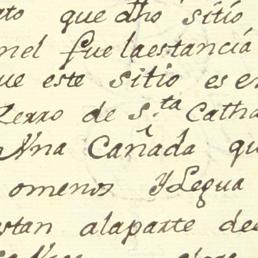 to que dho sitio
nel fue laestancia
ue este sitio es en
Zerro de Sta. Catha
n Vna Cañada qu
omenos YLegua
estan alaparte de